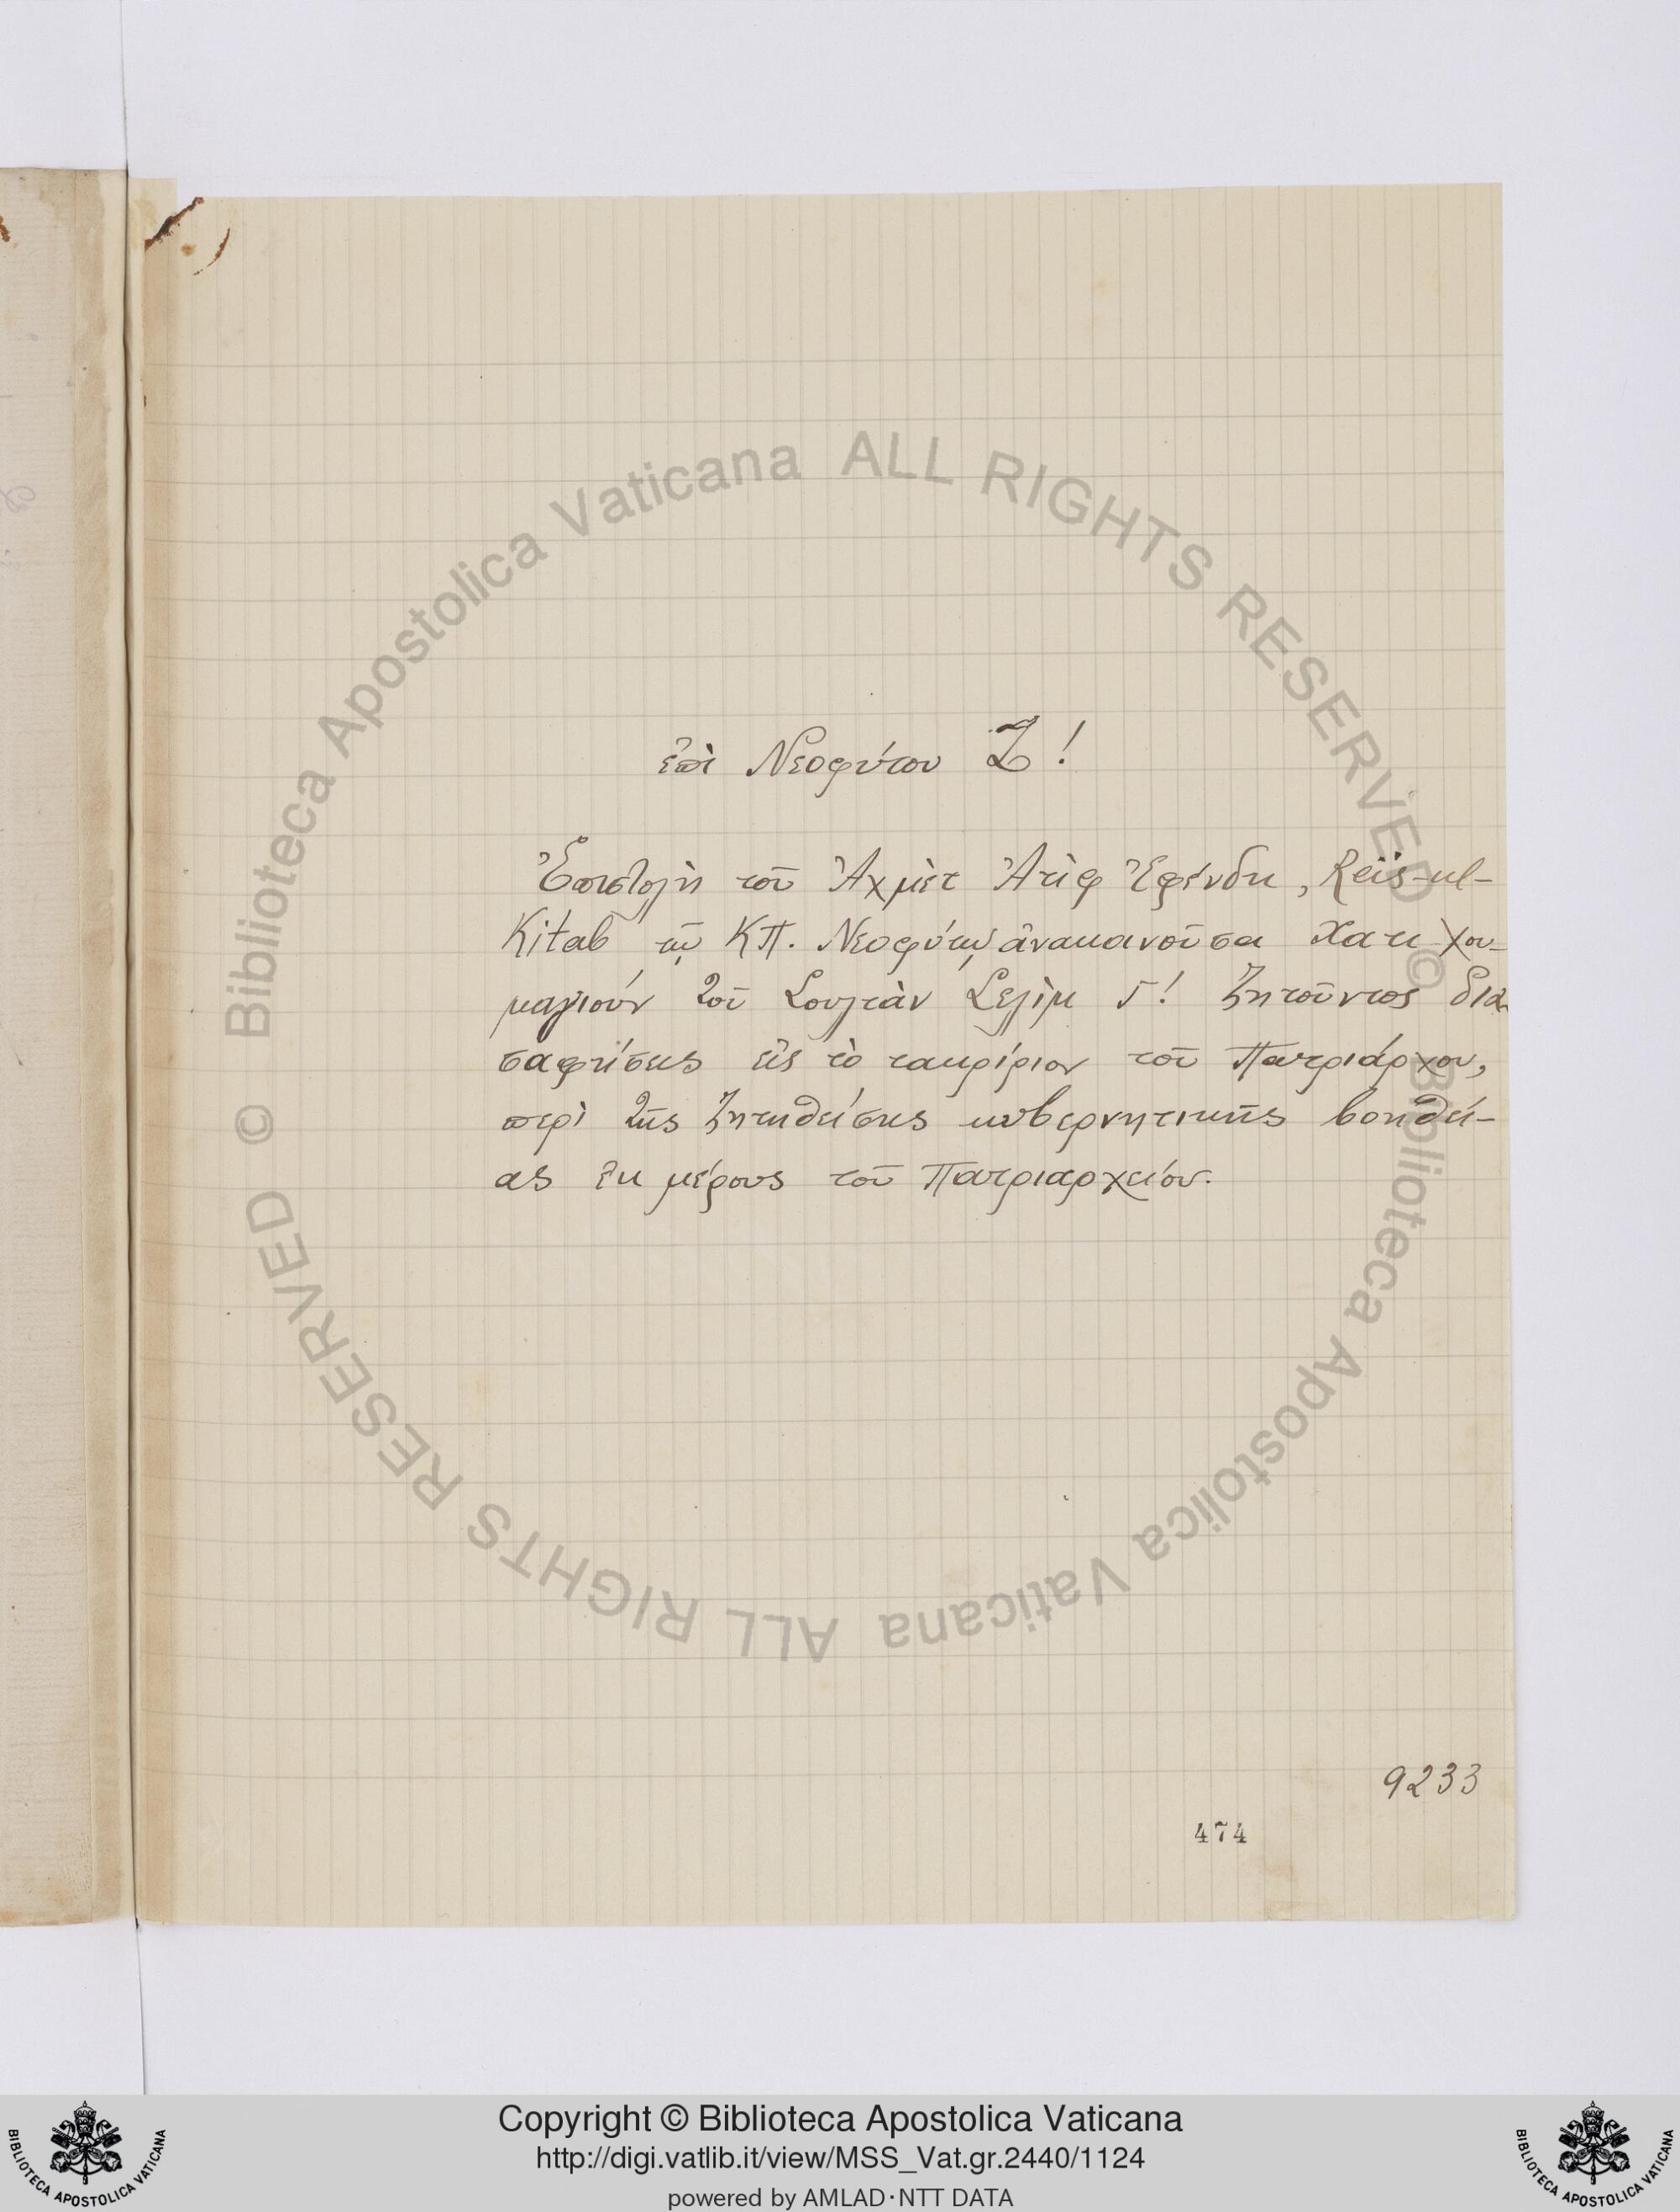 ἐπὶ Νεοφύτου Ζ!
Ἐπιστολὴ τοῦ Ἀχμὲτ Ἀτὶφ Ἐφένδη, Reïs-ul-
Kitab τῷ ΚΠ. Νεοφύτῳ ἀνακινοῦσα Χατι Χου-
μαγιοὺν τοῦ Σουλτὰν Σελὶμ Γ! ζητοῦντος δια
σαφήσεις εἰς τὸ τακρίριον τοῦ Πατριάρχου,
περὶ τῆς ζητηθείσης κυβερνητικῆς βοηθεί-
ας ἐκ μέρους τοῦ Πατριαρχείου.
9233
474
© Biblioteca Apostolica Vaticana ALL RIGHTS RESERVED
© Biblioteca Apostolica Vaticana ALL RIGHTS RESERVED
Copyright © Biblioteca Apostolica Vaticana
http://digi.vatlib.it/view/MSS_Vat.gr.2440/1124
powered by AMLAD·NTT DATA
BIBLIOTECA APOSTOLICA VATICANA
BIBLIOTECA APOSTOLICA VATICANA